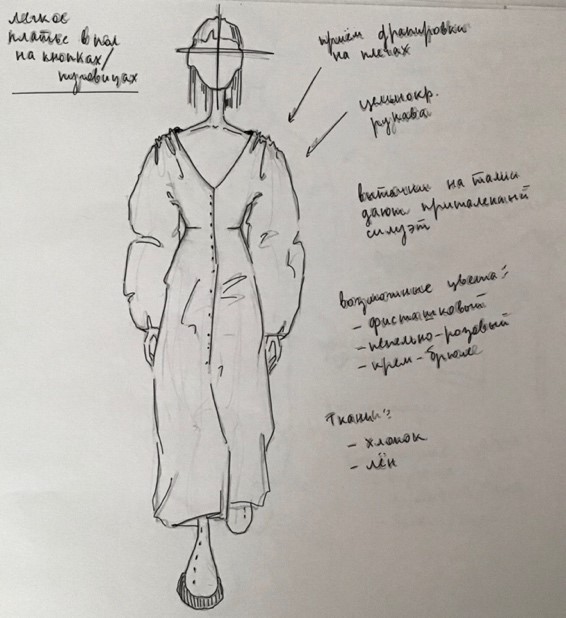 лёгкое
платье в пол
на кнопках/
пуговицах
приём драпировки
на плечах
цельнокр.
рукава
выточки на талии
дают приталенный
силуэт
возможные цвета:
- фисташковый
- пепельно-розовый
- крем-брюле
Ткани:
- хлопок
- лён